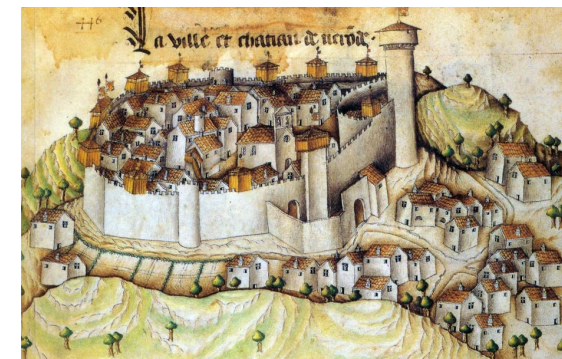 446
La ville et chatiau de nerõde.